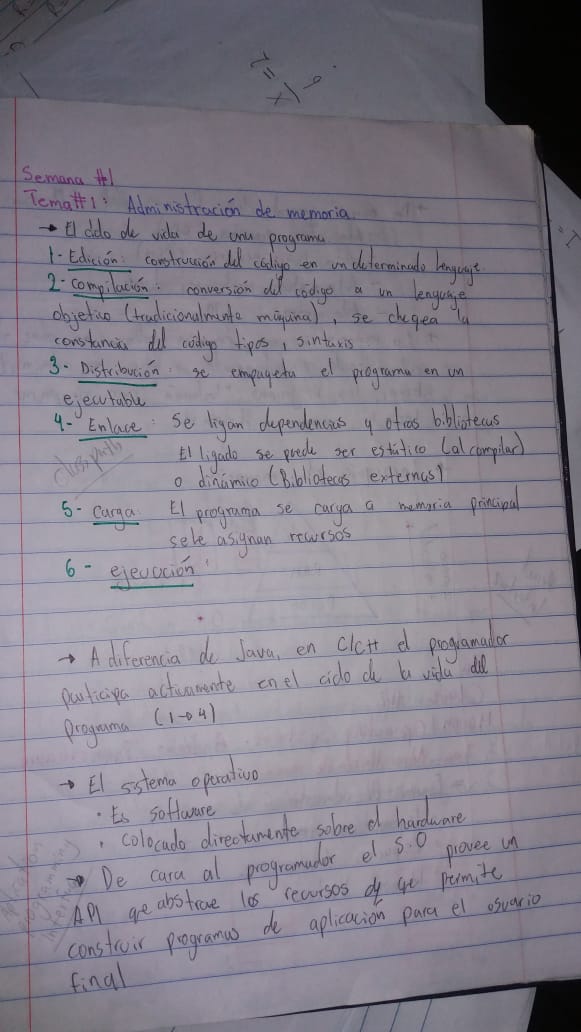 Semana #1
Tema #1: Administración de memoria
→ El ciclo de vida de un programa
1- Edición: construcción del código en un determinado lenguaje
2- Compilación: conversión del código a un lenguaje
objetivo (tradicionalmente máquina), se chequea la
constancia del código tipos, sintaxis
3- Distribución: se empaqueta el programa en un
ejecutable
4- Enlace: Se ligan dependencias y otras bibliotecas
classpath
El ligado se puede ser estático (al compilar)
o dinámico (Bibliotecas externas)
5- Carga: El programa se carga a memoria principal
se le asignan recursos
6- ejecución:
→ A diferencia de Java, en C/C++ el programador
participa activamente en el ciclo de la vida del
programa (1→4)
→ El sistema operativo
• Es software
• Colocado directamente sobre el hardware
→ De cara al programador el S.O provee un
API que abstrae los recursos de que permite
construir programas de aplicación para el usuario
final
programming